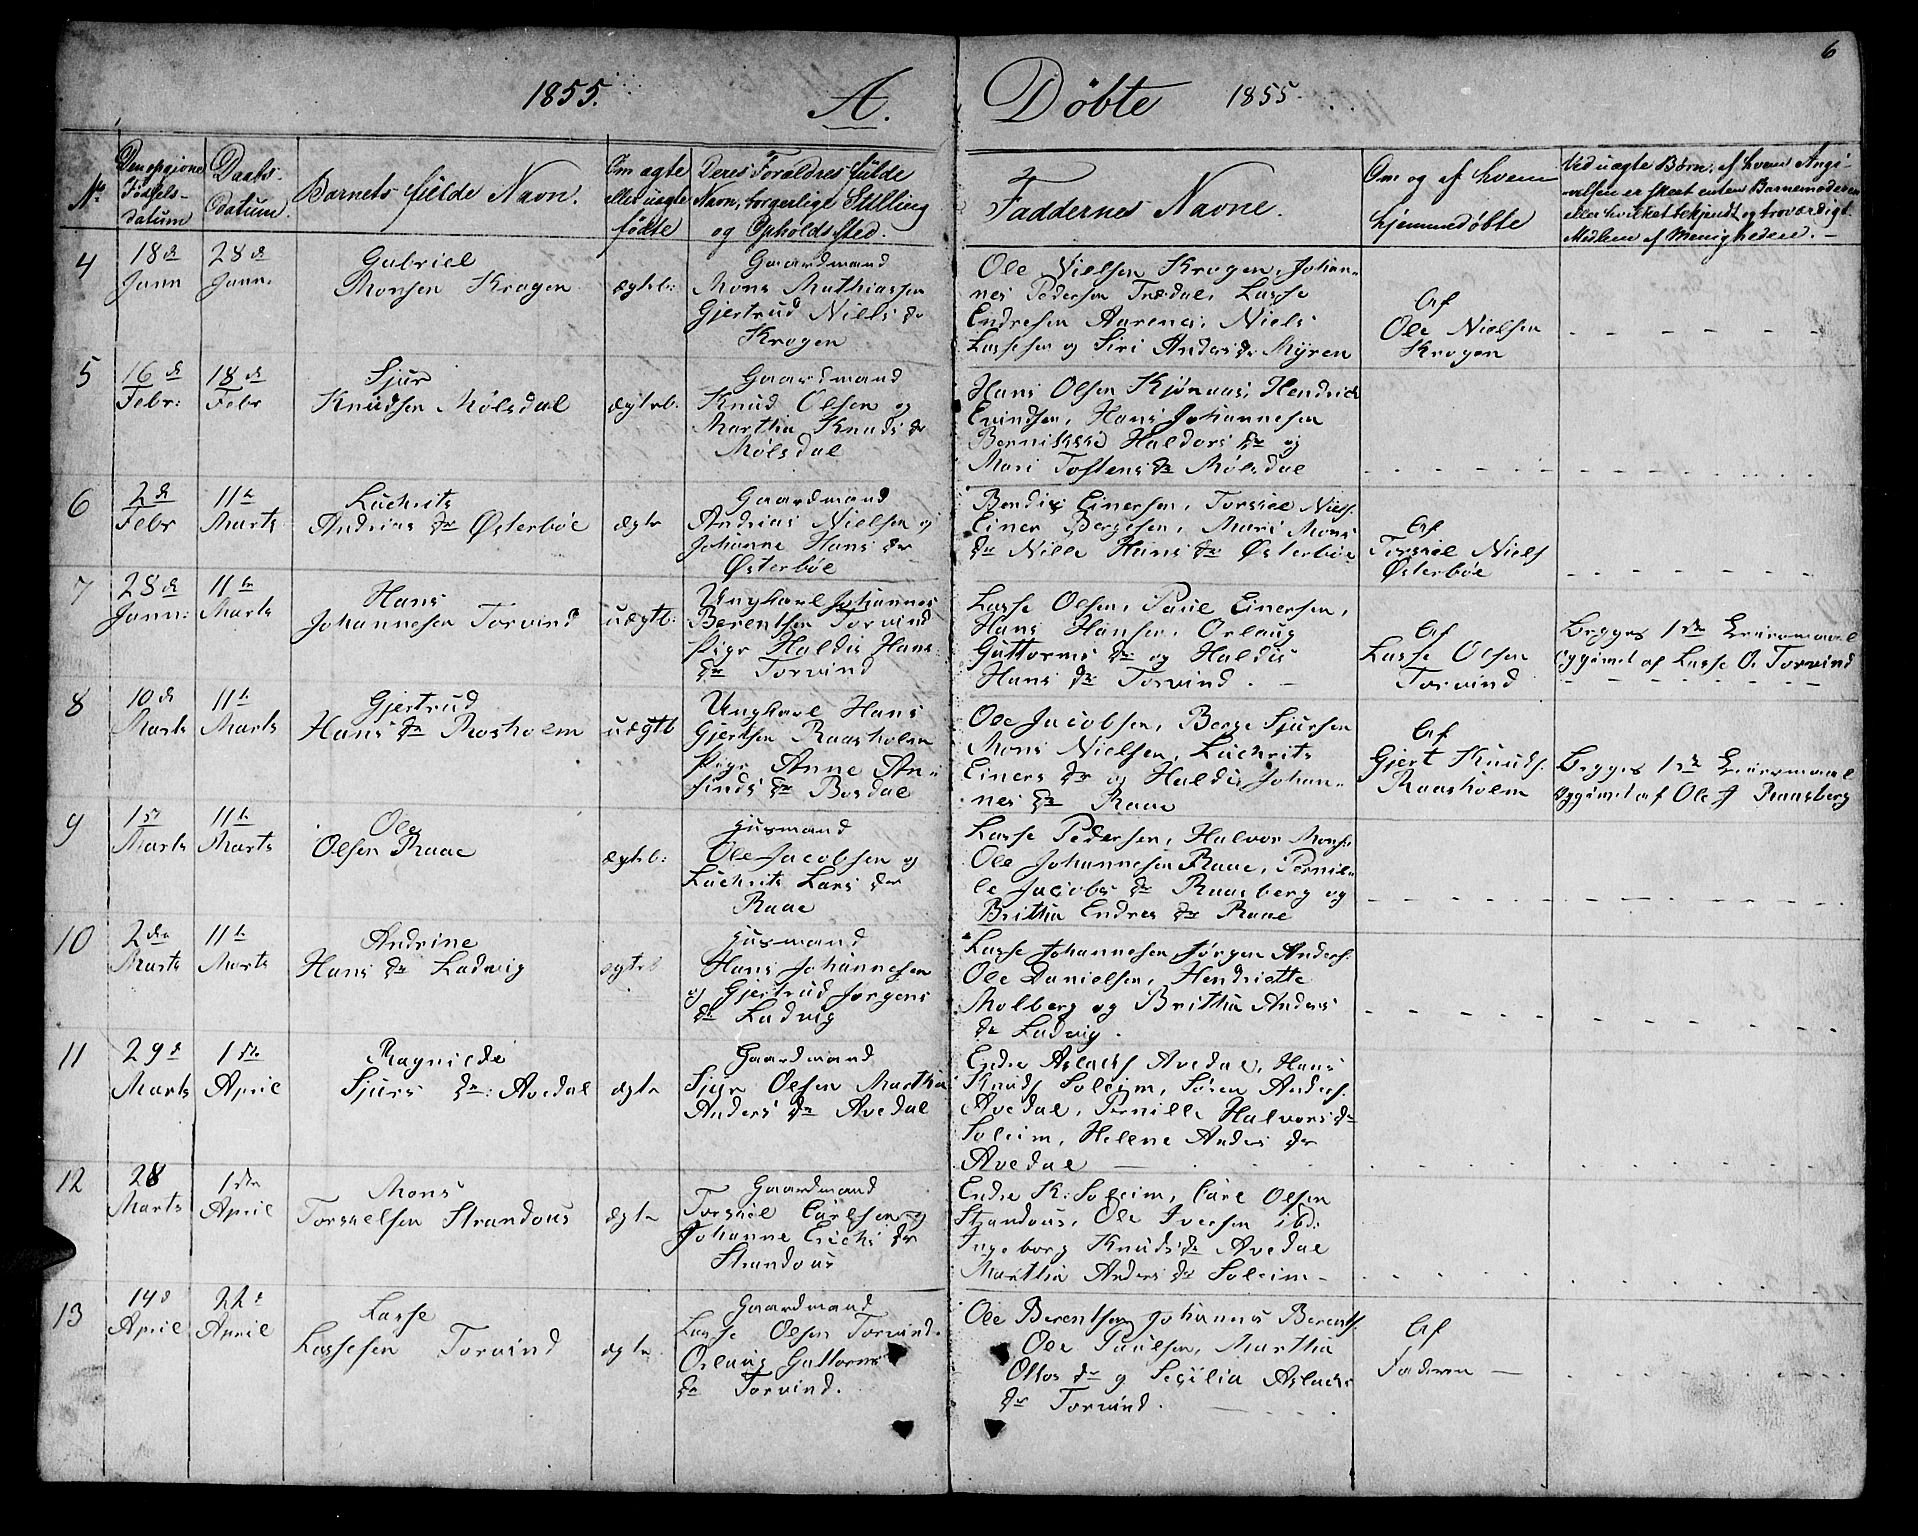 6
1855. A. Døbte 1855.
No
Den opgivne Fødsels-datum
Daabs-datum.
Barnets fulde Navn.
Om ægte eller uægte fødte
Deres Forældres fulde Navn, borgerlige Stilling og Opholdssted.
Faddernes Navne.
Om og af hvem hjemmedøbte
Ved uægte Børn, af hvem Angivelsen er skeet enten Barnemoderen eller hvilket bekjendt og troværdigt Medlem af Menigheden.
4
18de Janu
28de Janu.
Gabriel
Monsen Krogen
ægteb:
Gaardmand
Mons Mathiassen
Gjertrud Niels dr
Krogen
Ole Nielsen Krogen, Johan-
nes Pedersen Trædal, Lasse
Endresen Aarenes, Niels
Lassesen og Siri Anders dr Myren
Af
Ole Nielsen
Krogen
5
16de Febr:
18de Febr
Sjur
Knudsen Mølsdal
ægteb.
Gaardmand
Knud Olsen og
Martha Knuds dr
Mølsdal
Hans Olsen Kjønaas, Hendrick
Enindsen, Hans Johannesen
Haldors dr og
Mari Tostens dr Mølsdal
6
2de Febr
11te Marts
Luchrits
Andrias dr Østerbøe
ægte
Gaardmand
Andrias Nielsen og
Johanne Hans dr
Østerbøe
Bendix Einersen, Torskel Niels.
Einer Bergesen, Mari Mons
dr Nille Hans dr Østerbøe
Af
Torskel Niels
Østerbøe
7
28de Janu:
11te Marts
Hans
Johannesen Torvind
uægtb:
Ungkarl Johannes
Berentsen Torvind
Pige Haldis Hans
dr Torvind
Lasse Olsen, Paul Einersen,
Hans Hansen, Orlaug
Guttorms dr og Haldis
Hans dr Torvind.
Af
Lasse Olsen
Torvind
Begges 1ste Leiermaal
Opgivet af Lasse O. Torvind
8
10de Marts
11te Marts
Gjertrud
Hans dr Rosholm
uægtb
Ungkarl Hans
Gjertsen Raasholm
Pige Anne An-
finds dr Bosdal
Ole Jacobsen, Berge Sjursen
Mons Nielsen, Luchrits
Einers dr og Haldis Johan-
nes dr Raae
Af
Gjert Knuds.
Raasholm
Begges 1ste Leiermaal
Opgivet af Ole J Raasberg
9
1ste Marts
11te Marts
Ole
Olsen Raae
ægteb:
Husmand
Ole Jacobsen og
Luchrits Lars dr
Raae
Lasse Pedersen, Halvor Mons.
Ole Johannesen Raae, Pernil-
le Jacobs dr Raasberg og
Britha Endres dr Raae
10
2den Marts
11te Marts
Andrine
Hans dr Ladvig
ægteb
Husmand
Hans Johannesen
og Gjertrud Jørgens
dr Ladvig
Lasse Johannesen, Jørgen Anders.
Ole Danielsen, Hendriette
Molberg og Britha Anders
dr Ladvig.
11
29d Marts
1ste April
Ragnilde
Sjurs dr: Avedal
ægte
Gaardmand
Sjur Olsen Martha
Anders dr Avedal
Endre Aslachs Avedal, Hans
Knuds Soleim, Søren Anders.
Avedal, Pernille Halvors dr
Soleim, Helene Anders dr
Avedal
12
28 Marts
1ste April
Mons
Torskelsen Strandous
ægte
Gaardmand
Torskel Carlsen og
Johanne Erichs dr
Strandous
Endre K: Soleim, Carl Olsen
Strandous, Ole Iversen ibd:
Ingeborg Knuds dr Avedal
Martha Anders dr Soleim
13
14d April
22d April
Lasse
Lassesen Torvind
ægte
Gaardmand
Lasse Olsen Torvind.
Orlaug Guttorms
dr Torvind.
Ole Berentsen Johannes Berents.
Ole Paulsen, Martha
Ottos dr og Sesilia Aslachs
dr Torvind.
Af
Faderen